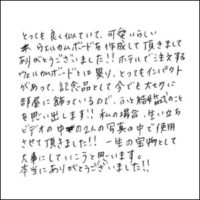 とっても良く似ていて、可愛いらしい
ウェルカムボードを作成して頂きまして
ありがとうございました!! ホテルで注文する
ウェルカムボードとは異り、とってもインパクト
があって、記念品として今でも大セツに
部屋に飾っているので、ふと結婚式のこと
を思い出します!! 私の場合、生い立ち
ビデオの中の2人の写真の中で使用
させて頂きました!! 一生の宝物として
大事にしていこうと思います。
本当にありがとうございました!